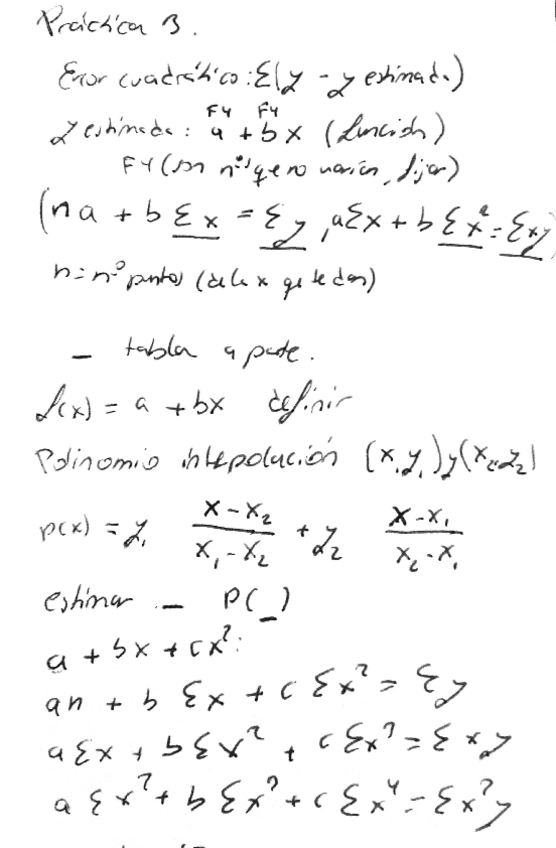 Práctica 3.
Error cuadrático: Σ(y - y estimada)
F4 F4
y estimada: a + bx (función)
F4 (son nºs que no varían, fijar)
(na + b Σx = Σy, aΣx + b Σx² = Σxy)
n = nº puntos (de la x que te dan)
- tabla a parte.
f(x) = a + bx definir
Polinomio interpolación (x₁y₁) y (x₂,y₂)
p(x) = y₁ (x - x₂)/(x₁ - x₂) + y₂ (x - x₁)/(x₂ - x₁)
estimar - P(_)
a + bx + cx²:
an + b Σx + c Σx² = Σy
aΣx + bΣx² + cΣx³ = Σxy
aΣx² + bΣx³ + cΣx⁴ = Σx²y